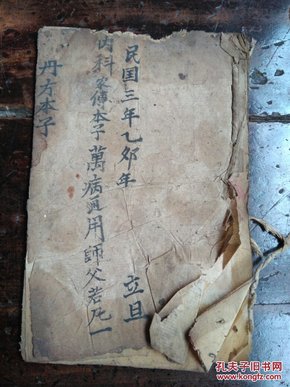 民国三年乙卯年 立旦
内科家传本子萬病通用師父若死一
丹方本子
孔夫子旧书网